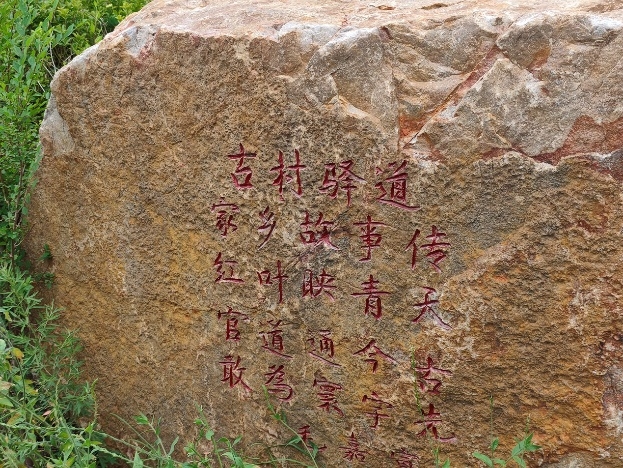 古村驿道
家乡故事传
红叶映青天
官道通今古
敢為寰宇先